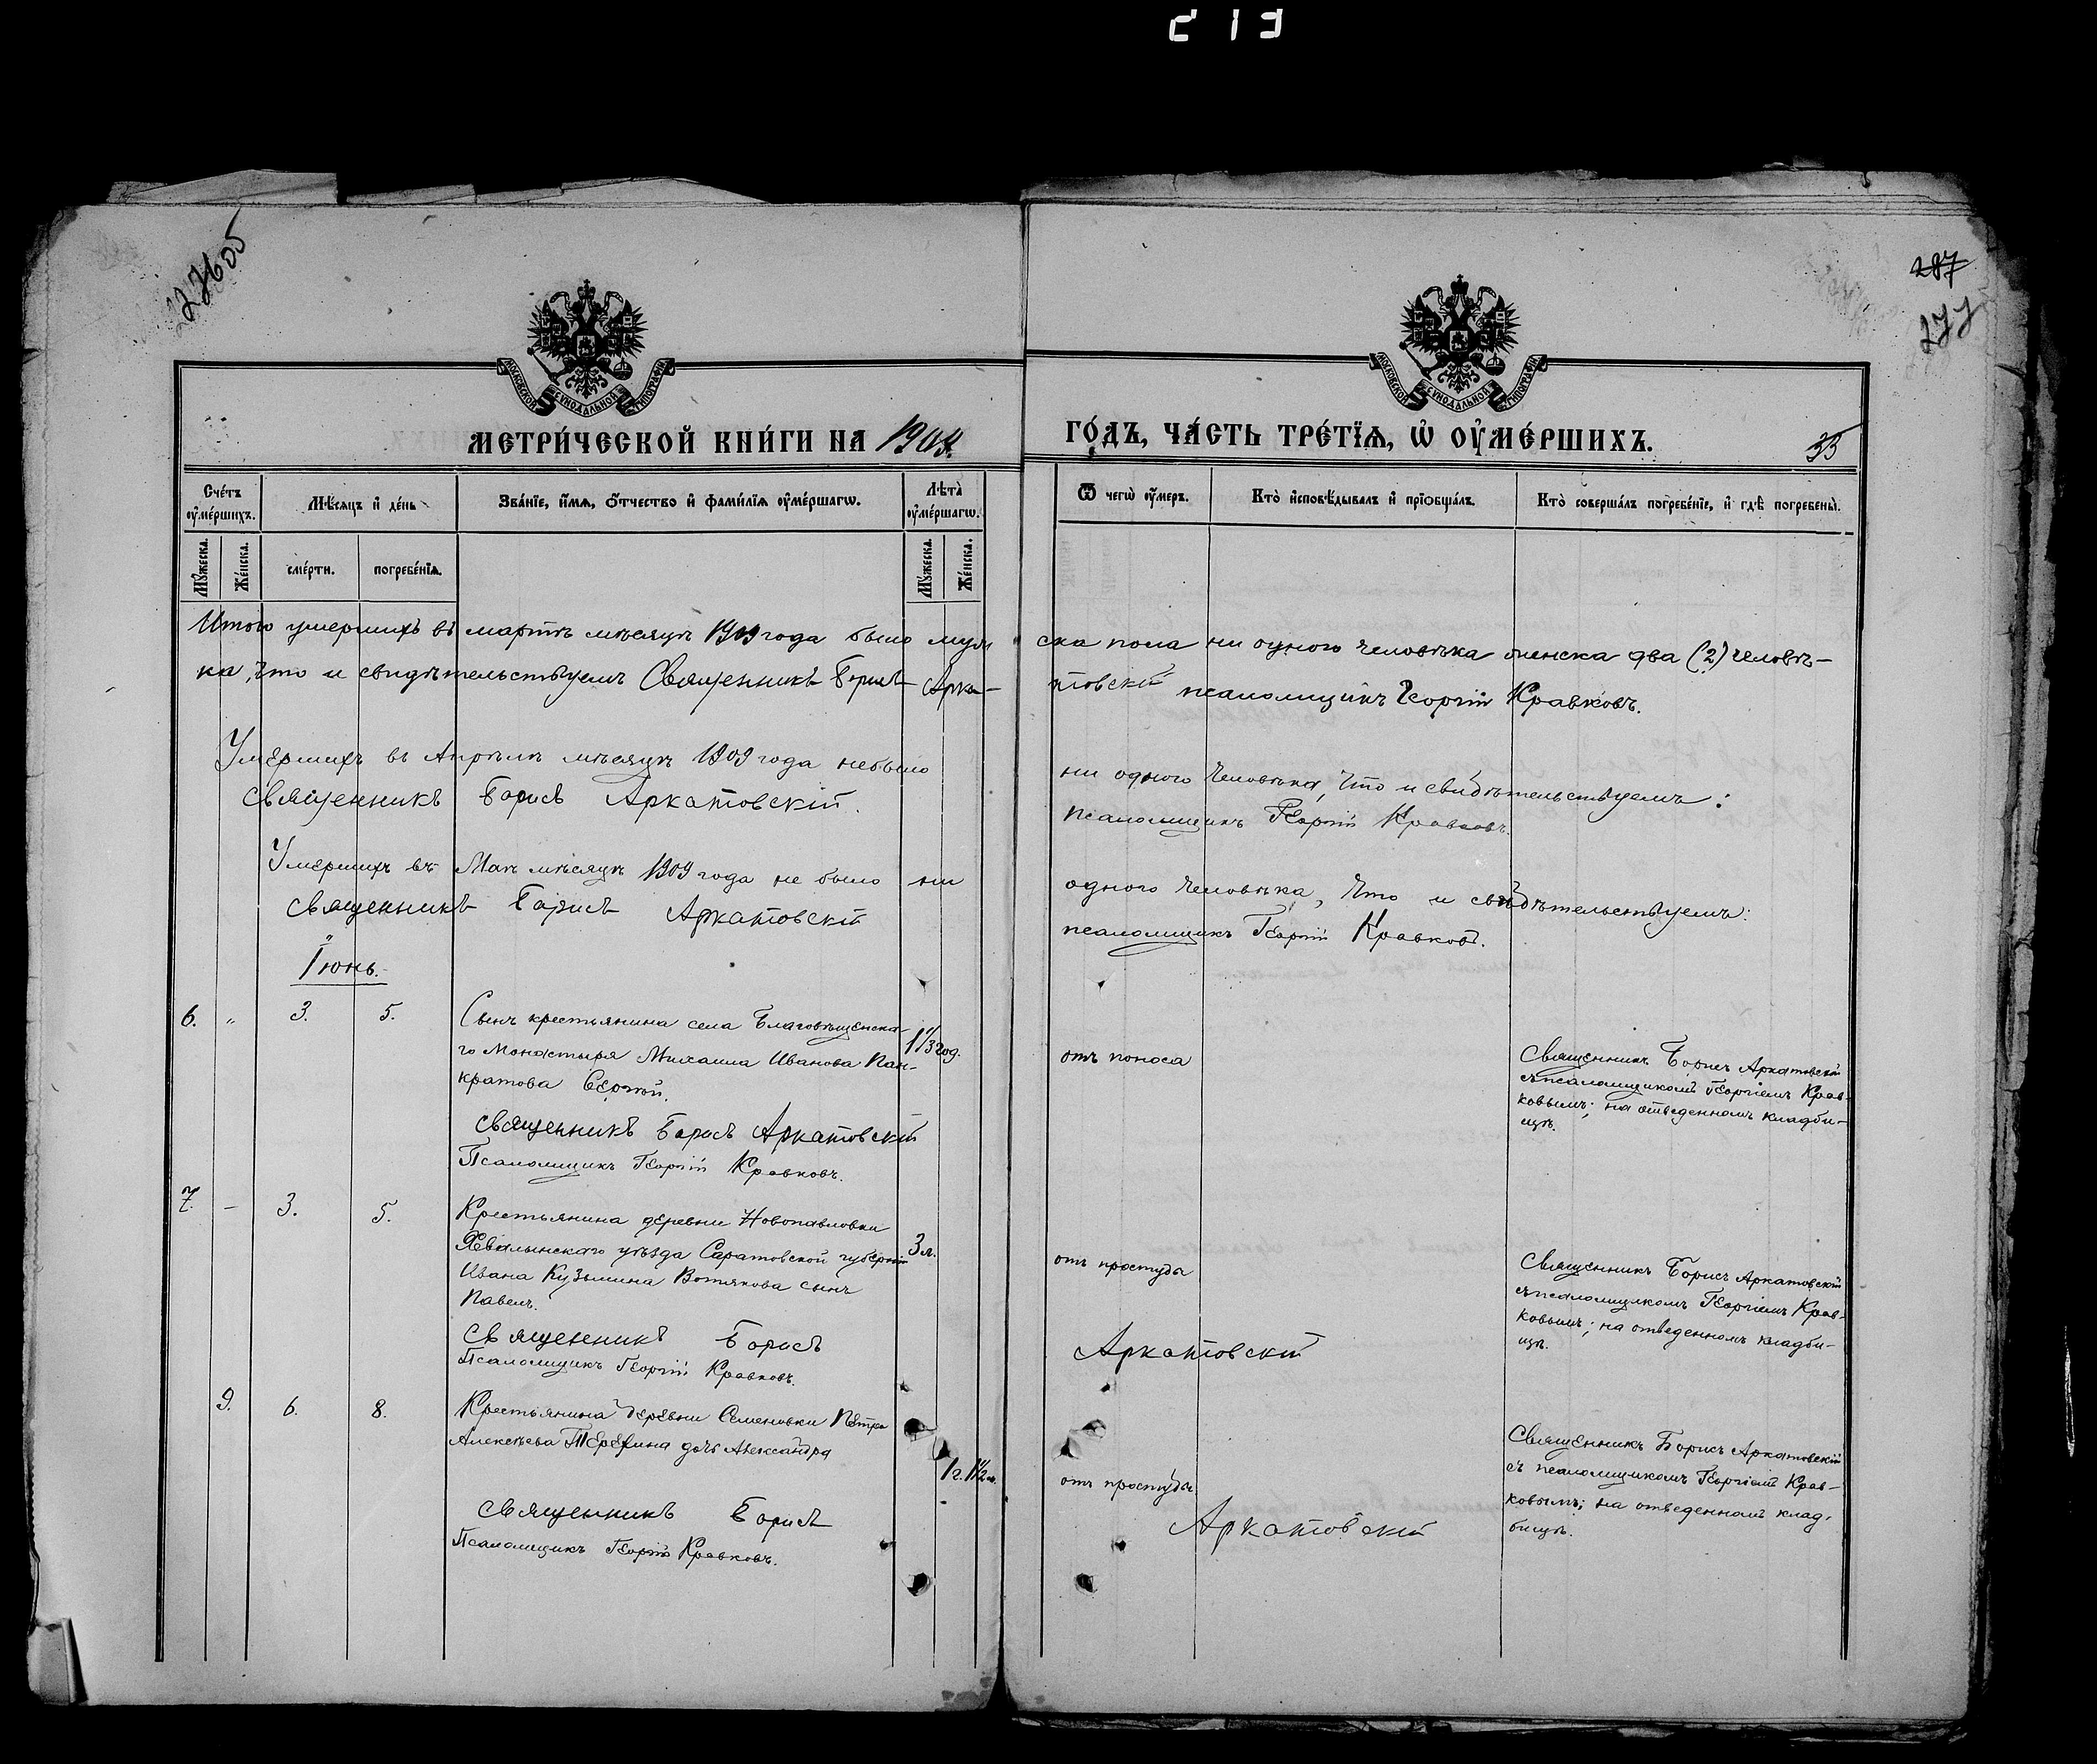 213
276об
287
277
МОСКОВСКОЙ СѴНОДАЛЬНОЙ ТИПОГРАФІИ
МОСКОВСКОЙ СѴНОДАЛЬНОЙ ТИПОГРАФІИ
МЕТРИ́ЧЕСКОЙ КНИ́ГИ НА 1909.
ГО́ДЪ, ЧА́СТЬ ТРЕ́ТЇѦ, Ѡ҆ ОУ҆МЕ́РШИХЪ.
35
Сче́тъ оу҆ме́ршихъ.
Мѣ́сѧцъ и҆ де́нь
Зва́нїе, и҆́мѧ, ѻ҆́тчество и҆ фами́лїѧ оу҆ме́ршагѡ.
Лѣ́та̀ оу҆ме́ршагѡ.
Ѿ чегѡ̀ оу҆́меръ.
Кто̀ и҆сповѣ́дывалъ и҆ прїѡбща́лъ.
Кто̀ соверша́лъ погребе́нїе, и҆ гдѣ̀ погребены̀.
Мꙋ́жеска.
Же́нска.
сме́рти.
погребе́нїѧ.
Мꙋ́жеска.
Же́нска.
Итого умершихъ въ мартѣ мѣсяцѣ 1909 года было муж ска пола ни одного человѣка женска два (2) человѣ-
ка, что и свидѣтельствуемъ Священникъ Борисъ Арка- товскій псаломщикъ Георгій Кравковъ.
Умершихъ въ Апрѣлѣ мѣсяцѣ 1909 года небыло ни одного человѣка, что и свидѣтельствуемъ:
Священникъ Борисъ Аркатовскій. Псаломщикъ Георгій Кравковъ.
Умершихъ въ Маѣ мѣсяцѣ 1909 года не было ни одного человѣка, что и свидѣтельствуемъ:
Священникъ Борисъ Аркатовскій псаломщикъ Георгій Кравковъ.
Іюнь.
6. „ 3. 5.
Сынъ крестьянина села Благовѣщенска-
го Монастыря Михаила Иванова Пан-
кратова Сергѣй.
1 1/3 год.
отъ поноса
Священникъ Борисъ Аркатовскій
съ псаломщикомъ Георгіемъ Крав-
ковымъ; на отведенномъ кладби-
щѣ.
Священникъ Борисъ Аркатовскій
Псаломщикъ Георгій Кравковъ.
7. – 3. 5.
Крестьянина деревни Новопавловки
Хвалынскаго уѣзда Саратовской губерніи
Ивана Кузьмина Вотякова сынъ
Павелъ.
3 л.
отъ простуды
Священникъ Борисъ Аркатовскій
съ псаломщикомъ Георгіемъ Крав-
ковымъ; на отведенномъ кладби-
щѣ.
Священникъ Борисъ Аркатовскій
Псаломщикъ Георгій Кравковъ.
9. 6. 8.
Крестьянина деревни Семеновки Петра
Алексѣева Терехина дочь Александра
1 г. 1 1/2 м.
отъ простуды
Священникъ Борисъ Аркатовскій
съ псаломщикомъ Георгіемъ Крав-
ковымъ; на отведенномъ клад-
бищѣ.
Священникъ Борисъ Аркатовскій
Псаломщикъ Георгій Кравковъ.